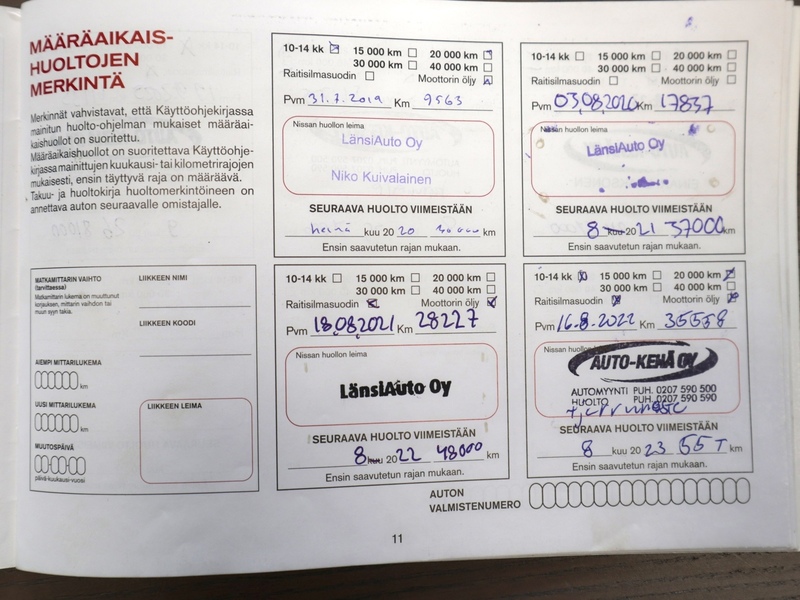 MÄÄRÄAIKAIS-
HUOLTOJEN
MERKINTÄ
Merkinnät vahvistavat, että Käyttöohjekirjassa
mainitun huolto-ohjelman mukaiset määräai-
kaishuollot on suoritettu.
Määräaikaishuollot on suoritettava Käyttöohje-
kirjassa mainittujen kuukausi- tai kilometrirajojen
mukaisesti, ensin täyttyvä raja on määräävä.
Takuu- ja huoltokirja huoltomerkintöineen on
annettava auton seuraavalle omistajalle.
10-14 kk 15 000 km 20 000 km
30 000 km 40 000 km
Raitisilmasuodin Moottorin öljy
Pvm 31.7.2019 Km 9563
Nissan huollon leima
LänsiAuto Oy
Niko Kuivalainen
SEURAAVA HUOLTO VIIMEISTÄÄN
heinä kuu 20 20 30000 km
Ensin saavutetun rajan mukaan.
10-14 kk 15 000 km 20 000 km
30 000 km 40 000 km
Raitisilmasuodin Moottorin öljy
Pvm 03.08.2020 Km 17837
Nissan huollon leima
LänsiAuto Oy
SEURAAVA HUOLTO VIIMEISTÄÄN
8 kuu 20 21 37000 km
Ensin saavutetun rajan mukaan.
MATKAMITTARIN VAIHTO
(tarvittaessa)
Matkamittarin lukema on muuttunut
korjauksen, mittarin vaihdon tai
muun syyn takia.
LIIKKEEN NIMI
LIIKKEEN KOODI
AIEMPI MITTARILUKEMA
km
UUSI MITTARILUKEMA
km
MUUTOSPÄIVÄ
päivä-kuukausi-vuosi
LIIKKEEN LEIMA
10-14 kk 15 000 km 20 000 km
30 000 km 40 000 km
Raitisilmasuodin Moottorin öljy
Pvm 18.08.2021 Km 28227
Nissan huollon leima
LänsiAuto Oy
SEURAAVA HUOLTO VIIMEISTÄÄN
8 kuu 20 22 48000 km
Ensin saavutetun rajan mukaan.
10-14 kk 15 000 km 20 000 km
30 000 km 40 000 km
Raitisilmasuodin Moottorin öljy
Pvm 16.8.2022 Km 35558
Nissan huollon leima
AUTO-KEHÄ OY
AUTOMYYNTI PUH. 0207 590 500
HUOLTO PUH. 0207 590 590
SEURAAVA HUOLTO VIIMEISTÄÄN
8 kuu 20 23 55 T km
Ensin saavutetun rajan mukaan.
AUTON
VALMISTENUMERO
11